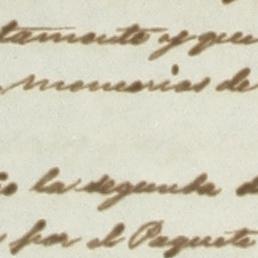 tamente y que
memorias de
la segunda d
por el Paquete